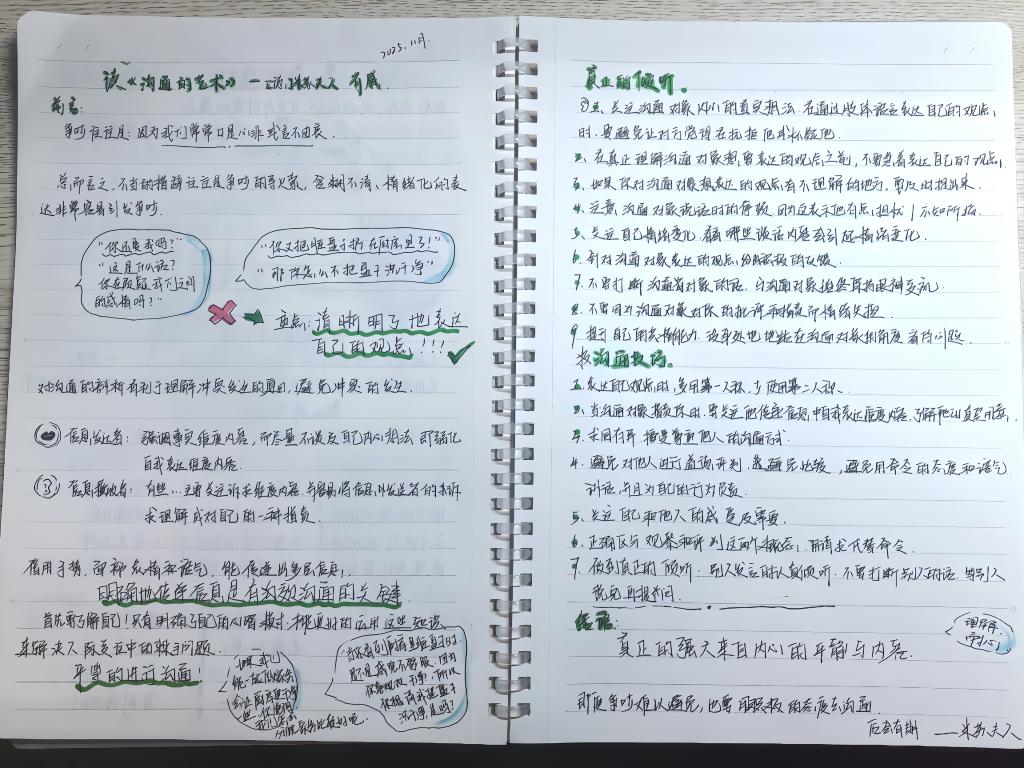 2023.11月.
读《沟通的艺术》 有感.
前言:
争吵往往是: 因为我们常常口是心非 或言不由衷.
总而言之, 不当的措辞往往是争吵的导火索, 含糊不清、情绪化的表
达非常容易引发争吵.
"你还爱我吗?"
"这是什么话?
你在质疑我们之间
的感情吗?"
"你又把脏盘子扔在厨房里了!"
"那你怎么不把盘子洗干净"
重点: 清晰明了地表达
自己的观点!!!
对沟通的剖析有利于理解冲突发生的原因, 避免冲突的发生.
信息发送者: 强调事实维度内容, 而尽量不谈及自己内心想法 即弱化
自我表达维度内容.
信息接收者: 自然...主要关注诉求维度内容, 并容易将信息发送者的诉
求理解成对自己的一种指责.
借用手势, 面部表情和语气, 能传递出更多信息,
明确地传递信息是有效沟通的关键
首先要了解自己! 只有明确了自己的心
来解决人际交往中的棘手问题.
平等的进行沟通
真正的倾听.
①要关注沟通对象内心的真实想法 在通过肢体语言表达自己的观点,
时, 要避免让对方觉得在抗拒他或打断他.
2. 在真正理解沟通对象想要表达的观点之前, 不要急着表达自己的观点,
3. 如果你对沟通对象想表达的观点有不理解的地方, 要及时提出来.
4. 注意沟通对象说话时的停顿 因为这表示他有点担忧 / 不知所措.
5. 关注自己情绪变化, 看看哪些谈话内容会引起情绪变化.
6. 针对沟通对象表达的观点, 给出积极的反馈.
7. 不要打断沟通对象的话
8. 不要因为沟通对象对你的批评和指责而情绪失控.
9. 提升自己的共情能力 设身处地地站在沟通对象的角度看待问题
沟通技巧.
1. 表达自己观点时, 多用第一人称, 少使用第二人称.
2. 当沟通对象指责你时, 要关注他传递信息中自我表达维度内容, 了解他的真实用意,
3. 求同存异, 接受尊重他人的沟通方式.
4. 避免对他人进行道德评判, 避免比较, 避免用命令的态度和语气
讲话, 并且为自己的行为负责.
5. 关注自己和他人的感受及需要.
6. 正确区分观察和评判这两个概念, 用请求代替命令.
7. 做到真正的倾听. 别人发言时认真倾听, 不要打断别人的话, 等别人
说完再提问.
结语:
理解.
真正的强大来自内心的平静与内容.
即使争吵难以避免, 也要用积极的态度去沟通.
后会有期